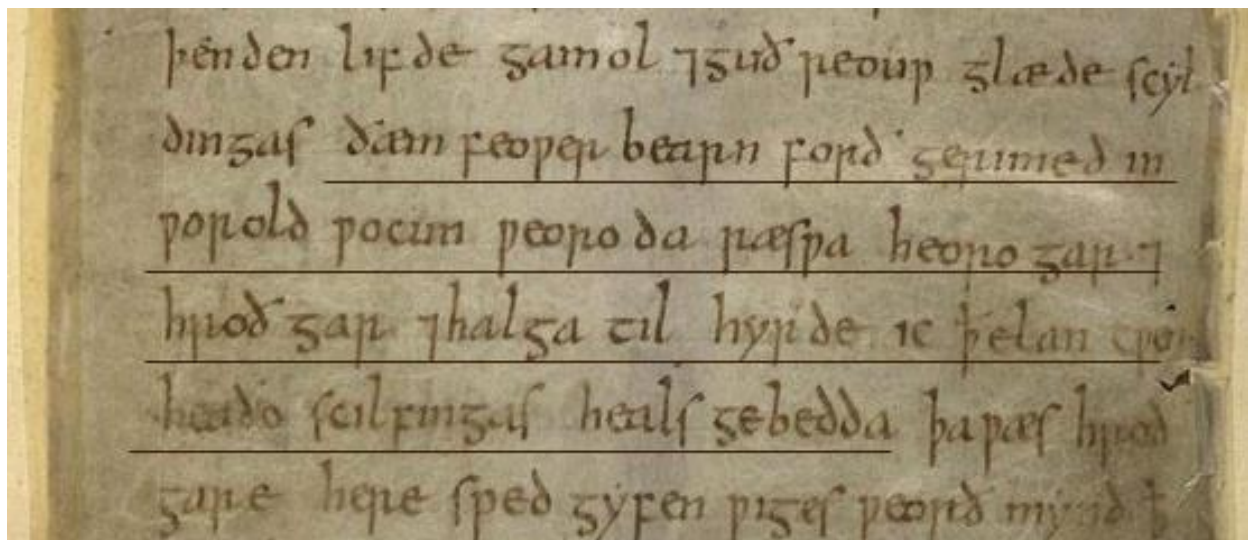 þenden lifde gamol ⁊guð reouƿ glæde scyl
dingas ðæm feoƿer bearn forð gerimed in
ƿorold ƿocun ƿeoro da ræsƿa heoro gar ⁊
hroð gar ⁊halga til hyrde ic ꝥelan cƿen
heaðo scilfingas heals gebedda þaƿæs hroð
gare here sped gyfen ƿiges ƿeorð mynd ꝥ